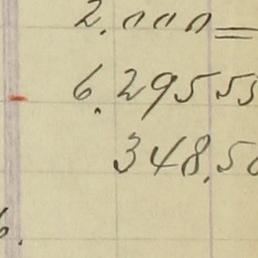 2.000=
6.295 55
348.50
6.